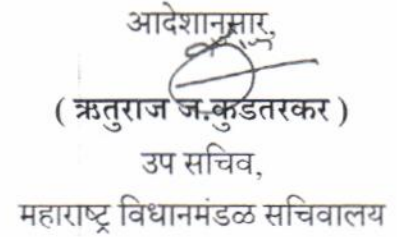 आदेशानुसार,
( ऋतुराज ज.कुडतरकर )
उप सचिव,
महाराष्ट्र विधानमंडळ सचिवालय